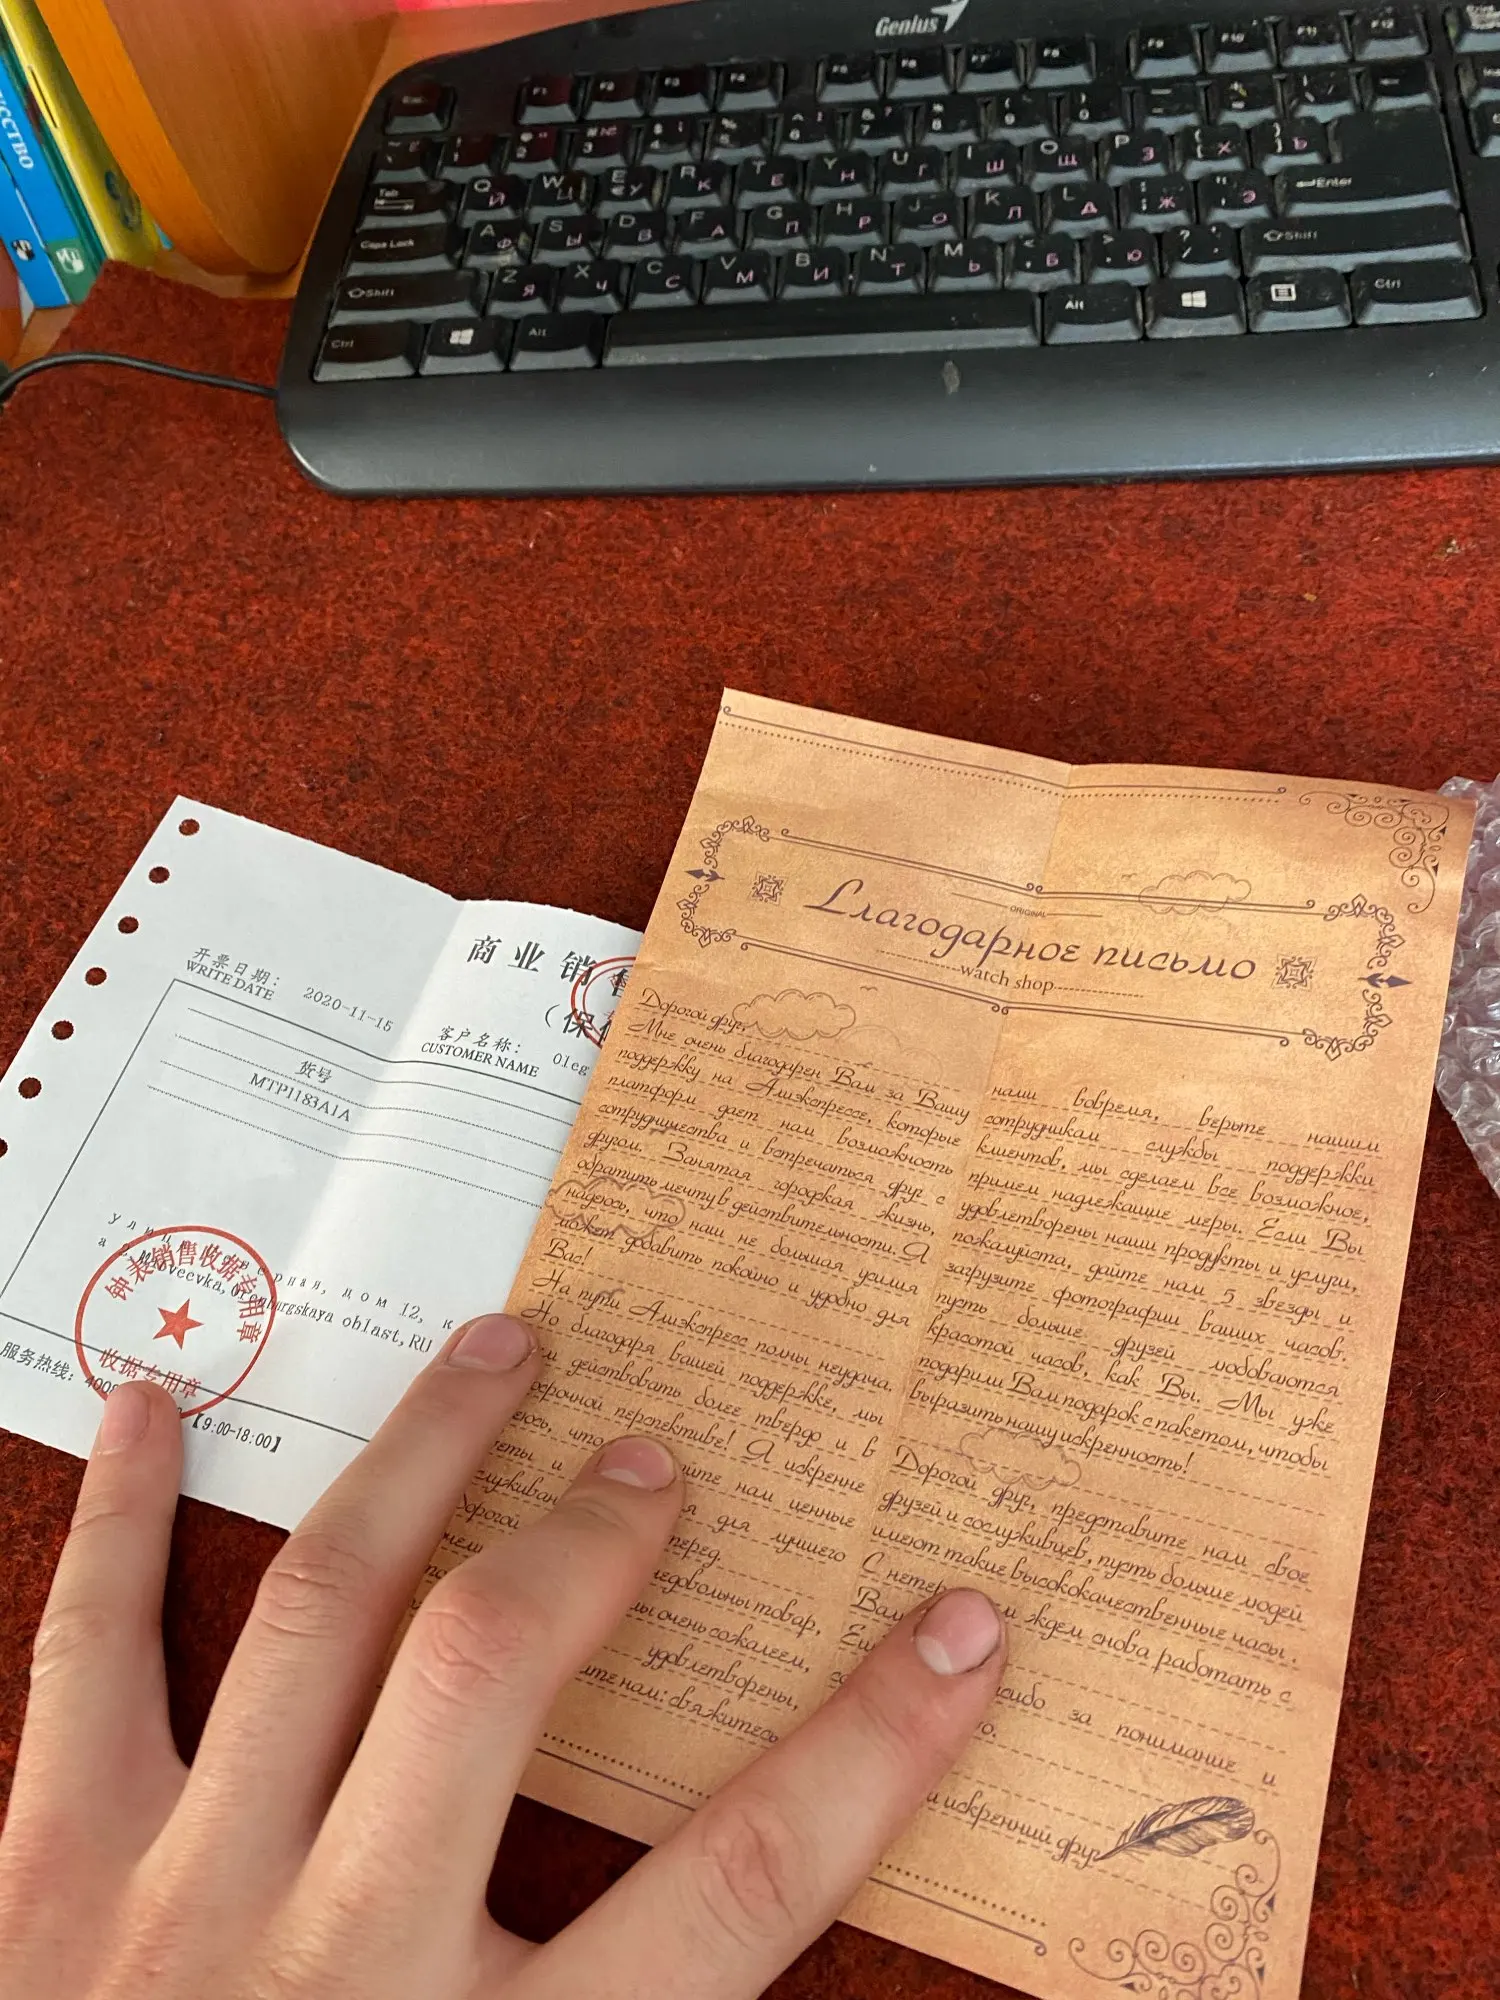 Genius
УССТВО
商业销
（保
开票日期： 2020-11-15
WRITE DATE
客户名称： Oleg
CUSTOMER NAME
货号
MTP1183A1A
дом 12, к
oblast,RU
钟表销售收据专用章
收据专用章
服务热线：
【9:00-18:00】
ORIGINAL
Благодарное письмо
watch shop
Дорогой друг,
Мне очень благодарен Вам за Вашу
поддержку на Алиэкспрессе, которые
платформ дает нам возможность
сотрудничества и встречаться друг с
другом. Занятая городская жизнь,
обратить мечту в действительности. Я
надеюсь, что наш не большая усилия
может добавить покойно и удобно для
Вас!
На пути Алиэкспресс полны неудача.
Но благодаря вашей поддержке, мы
действовать более твердо и в
срочной перспективе! Я искренне
что
и йте нам ценные
для лучшего
Дорогой перед.
недовольны товар,
мы очень сожалеем,
удовлетворены,
нам: свяжитесь
нами вовремя, верьте нашим
сотрудникам службы поддержки
клиентов, мы сделаем все возможное,
примем надлежащие меры. Если Вы
удовлетворены наши продукты и услуги,
пожалуйста, дайте нам 5 звезды и
загрузите фотографии ваших часов.
пусть больше друзей любоваются
красотой часов, как Вы. Мы уже
подарили Вам подарок с пакетом, чтобы
выразить нашу искренность!
Дорогой друг, представите нам свое
друзей и сослуживцев, пусть больше людей
имеют такие высококачественные часы.
С ждем снова работать с
Вам
за понимание и
и искренний друг